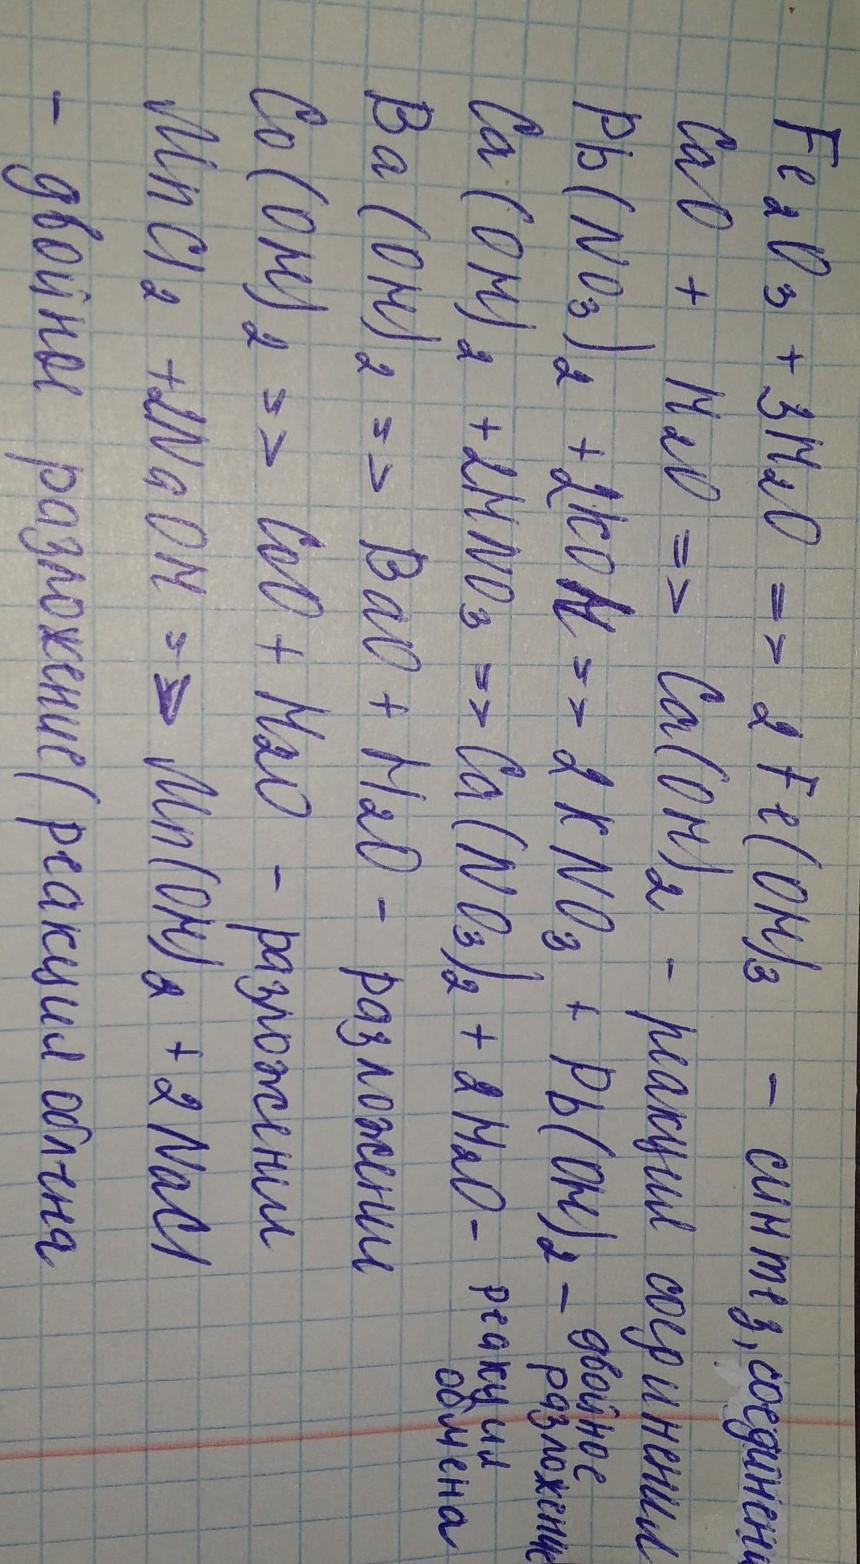 Fe2O3 + 3H2O => 2Fe(OH)3 - синтез, соединени
CaO + H2O => Ca(OH)2 - реакция соединения
Pb(NO3)2 + 2KOH => 2KNO3 + Pb(OH)2 - двойное
разложение
Ca(OH)2 + 2HNO3 => Ca(NO3)2 + 2H2O - реакция
обмена
Ba(OH)2 => BaO + H2O - разложения
Co(OH)2 => CoO + H2O - разложения
MnCl2 + 2NaOH => Mn(OH)2 + 2NaCl
- двойное разложение (реакция обмена